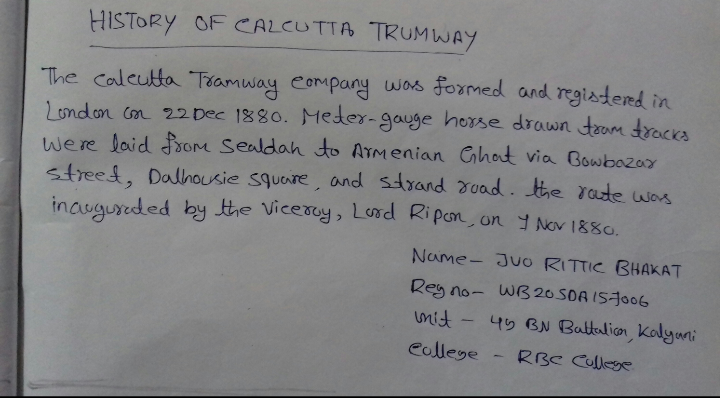 HISTORY OF CALCUTTA TRUMWAY
The Calcutta Tramway Company was formed and registered in
London on 22 Dec 1880. Meter-gauge horse drawn tram tracks
were laid from Sealdah to Armenian Ghat via Bowbazar
street, Dalhousie square, and strand road. the route was
inaugurated by the Viceroy, Lord Ripon, on 1 Nov 1880.
Name- JUO RITTIC BHAKAT
Reg no- WB20SDA157006
Unit - 45 BN Battalion, Kalyani
College - RBC College